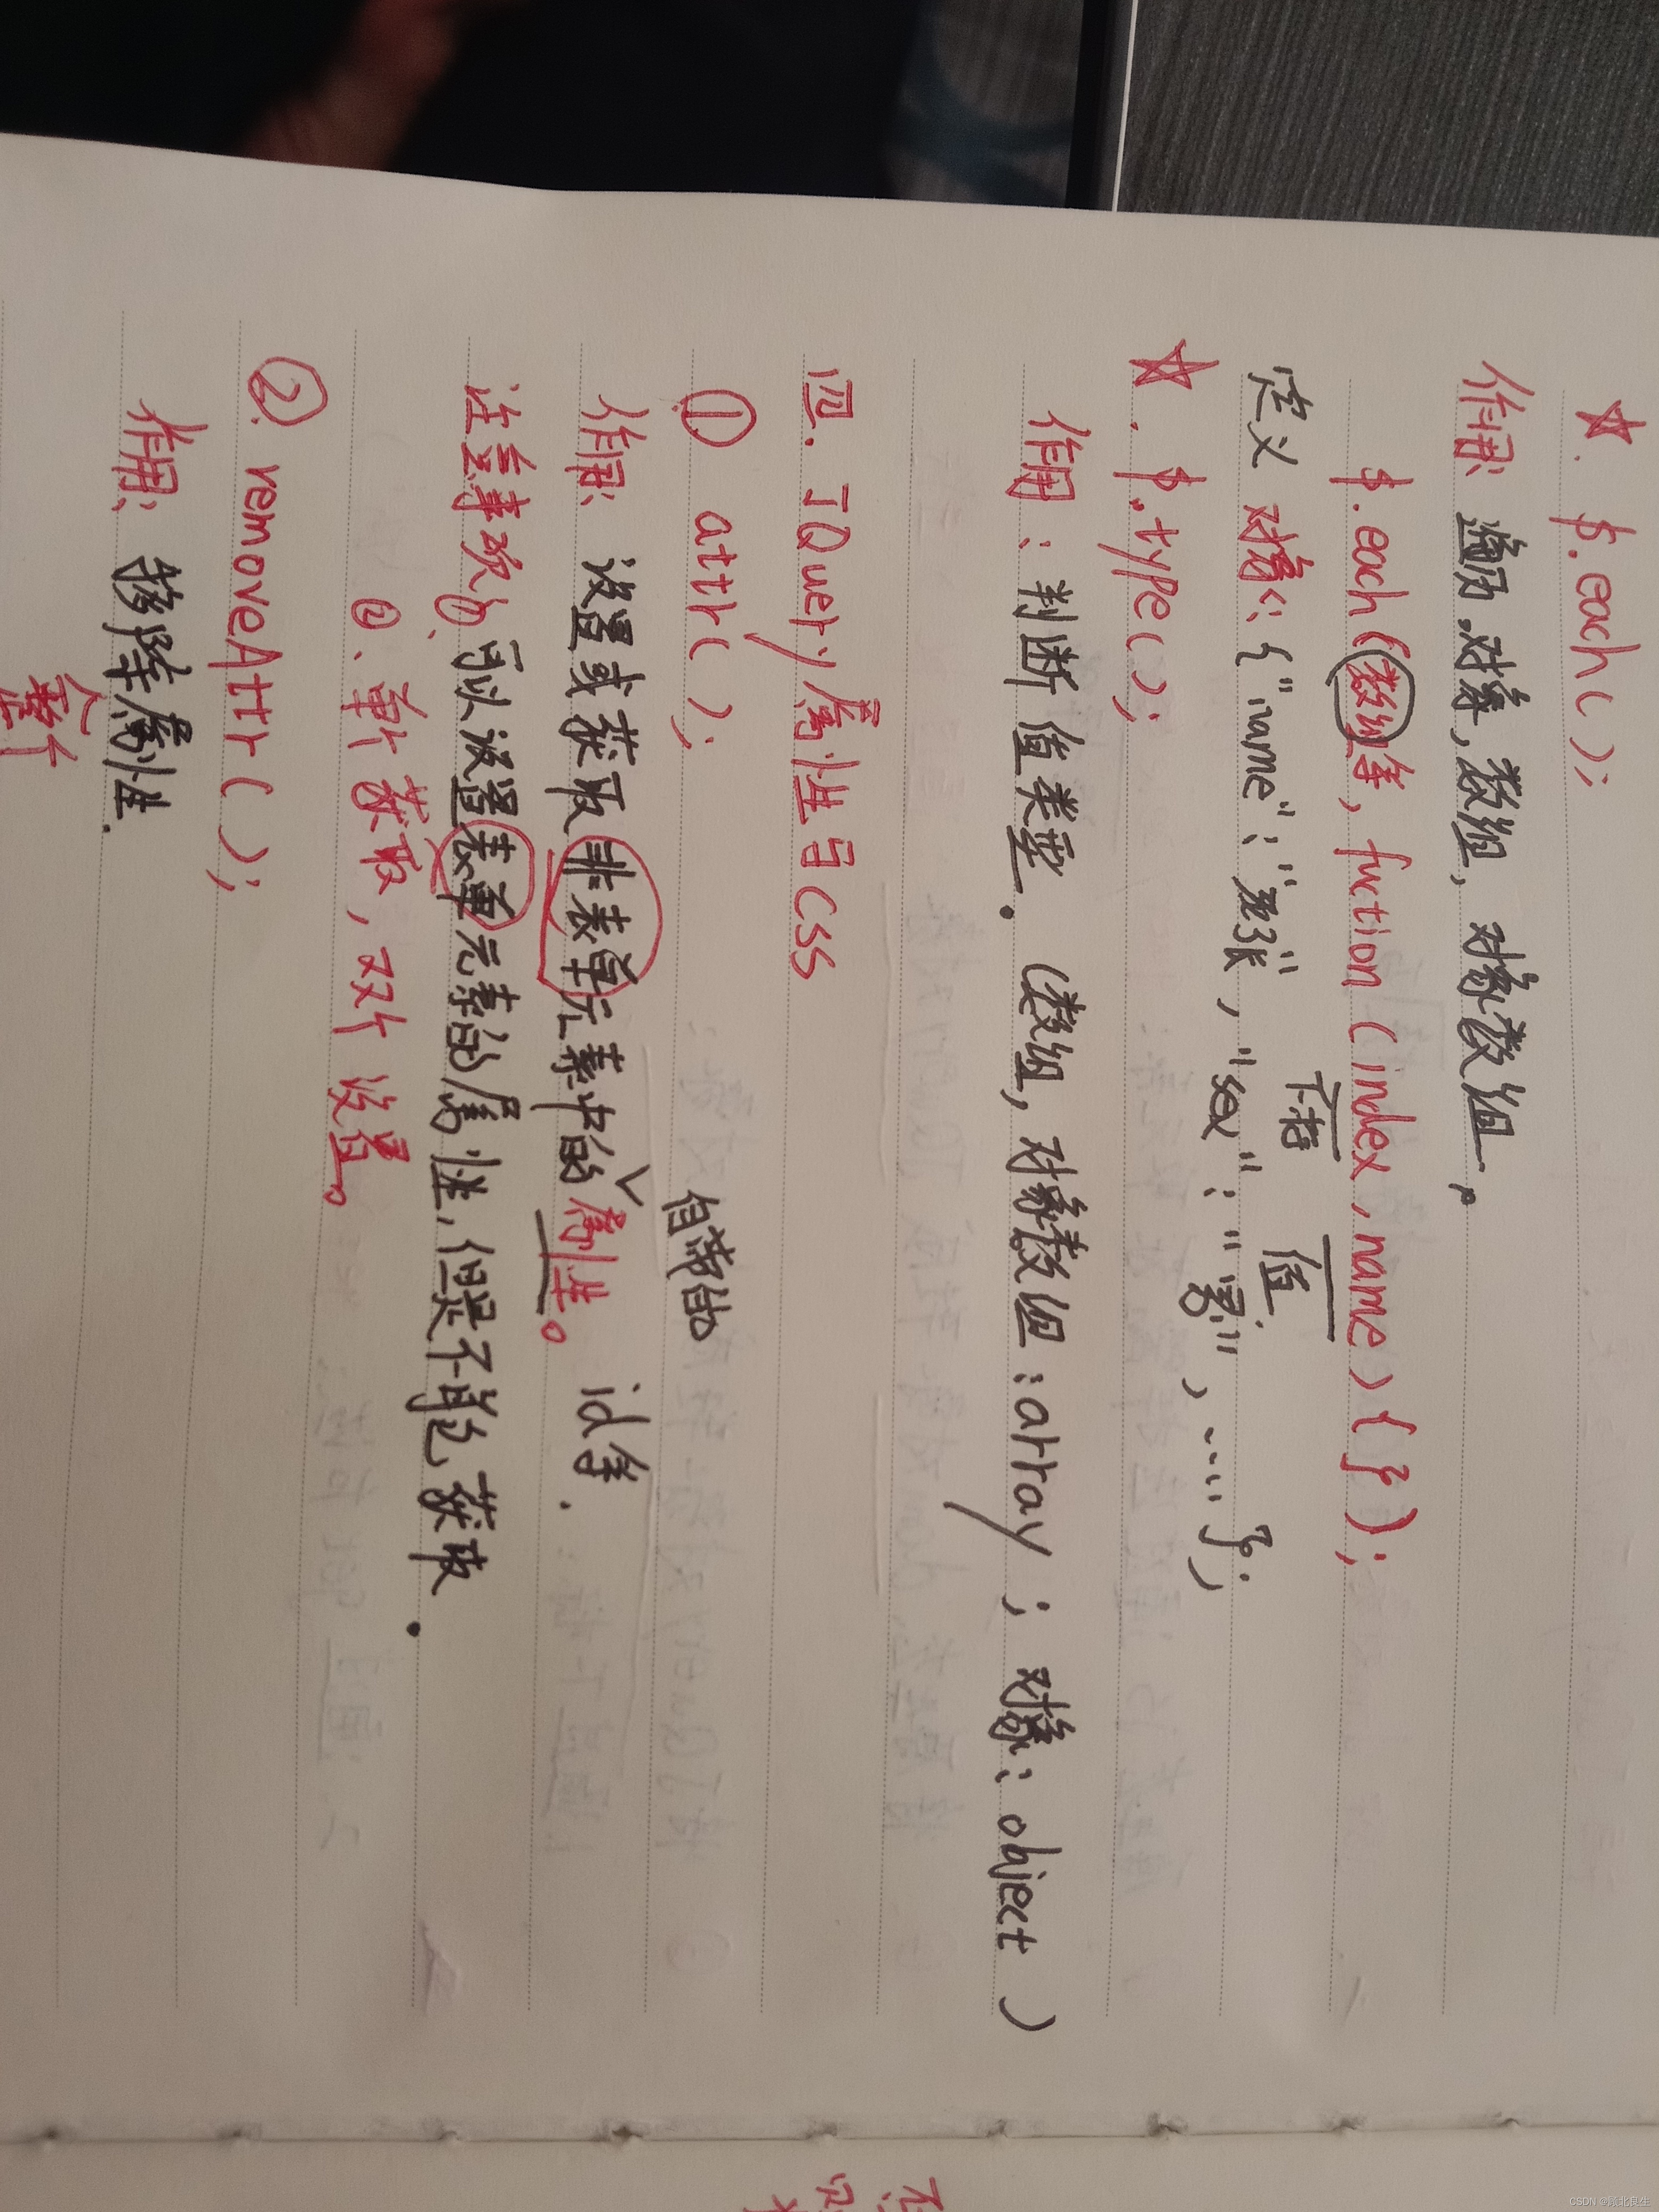 ☆. $.each();
作用: 遍历.对象,数组, 对象数组。
$.each(数组等, fuction (index,name){});
下标 值.
定义 对象: {"name":"张", "sex":"男", ....};
☆. $.type();
作用: 判断值类型. (数组, 对象数组:array; 对象: object)
四. JQuery属性与CSS
① attr();
自带的
作用: 设置或获取非表单元素中的属性。 id等.
注意事项 ①、可以设置表单元素的属性, 但是不能获取.
②、单个获取, 双个设置。
②. removeAttr();
作用: 移除属性.
CSDN @顾北良生